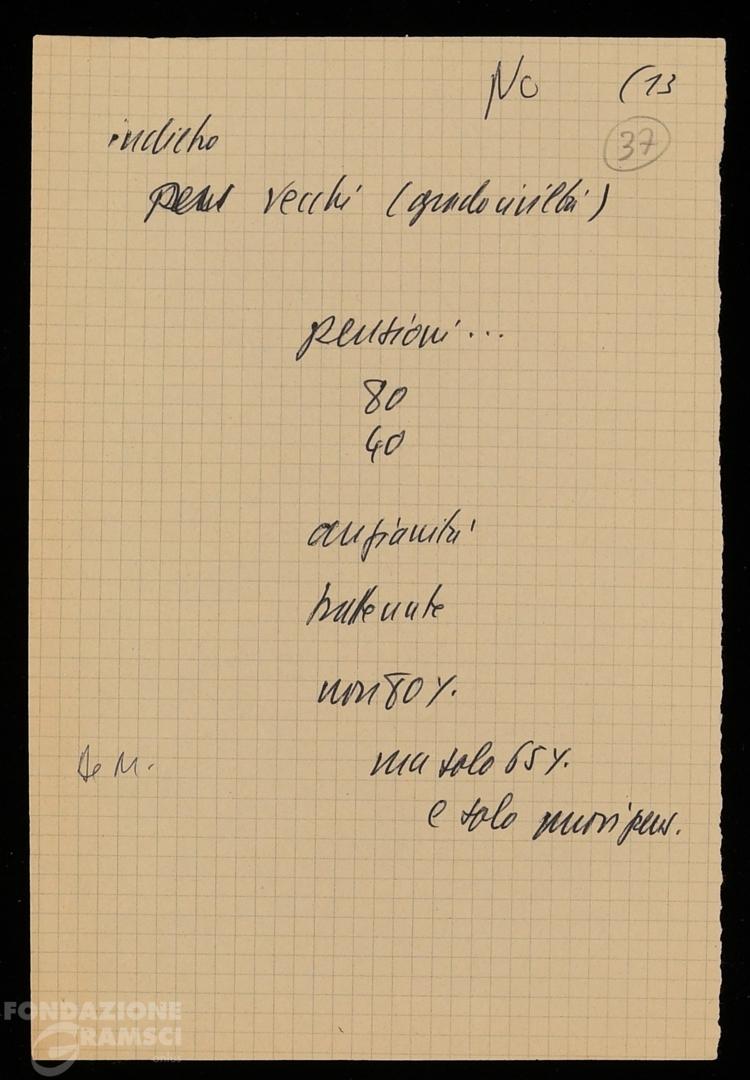 No (13
37
indietro
pens vecchi (grado civiltà)
pensioni...
80
40
anzianità
trattenute
non 80%.
ma solo 65%.
De M.
e solo nuovi pens.
FONDAZIONE
GRAMSCI
onlus